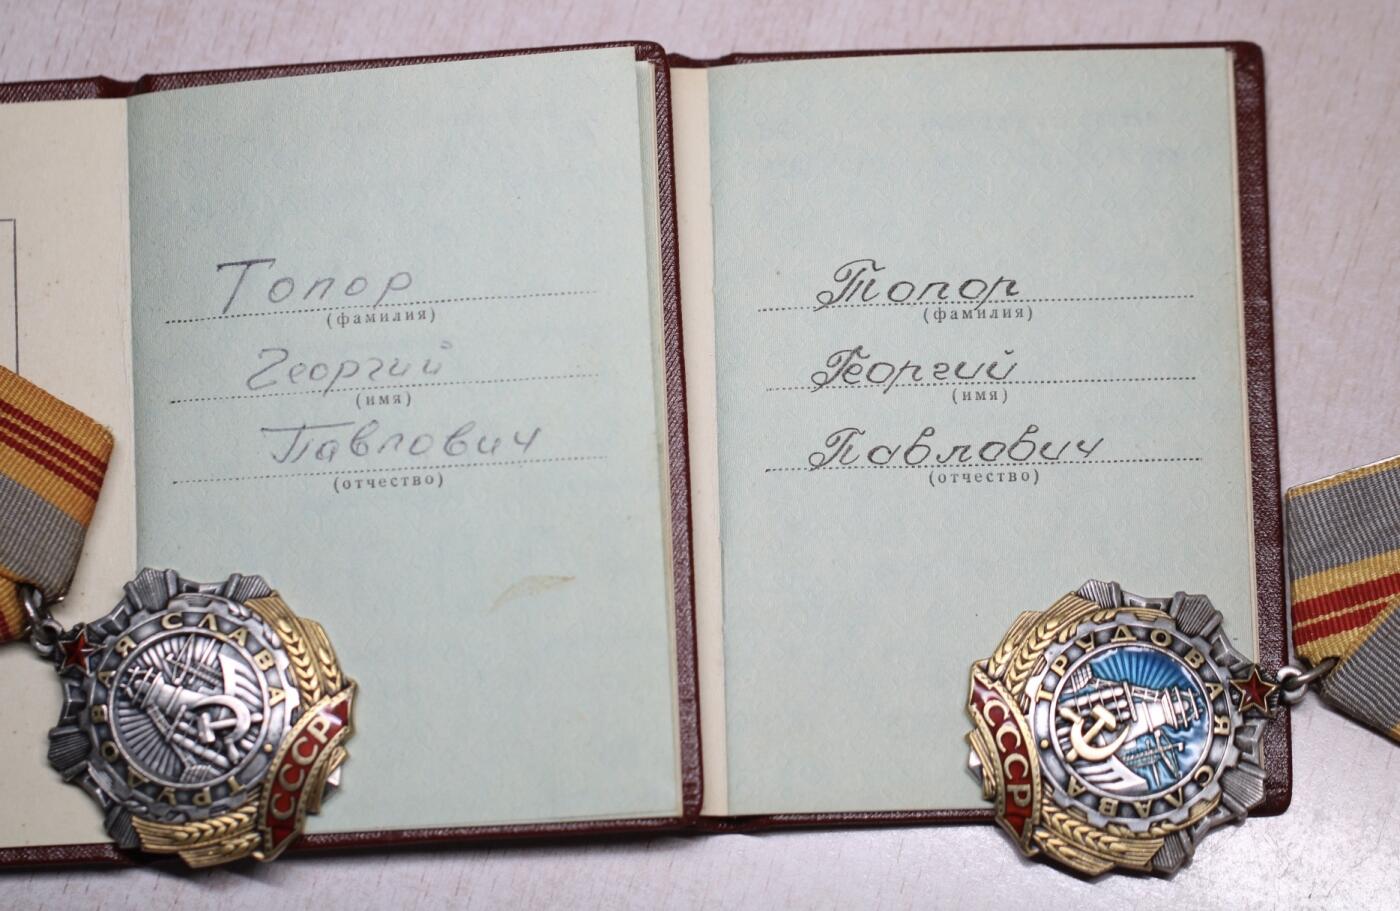 Топор
(фамилия)
Георгий
(имя)
Павлович
(отчество)
Топор
(фамилия)
Георгий
(имя)
Павлович
(отчество)
ТРУДОВАЯ СЛАВА
СССР
ТРУДОВАЯ СЛАВА
СССР